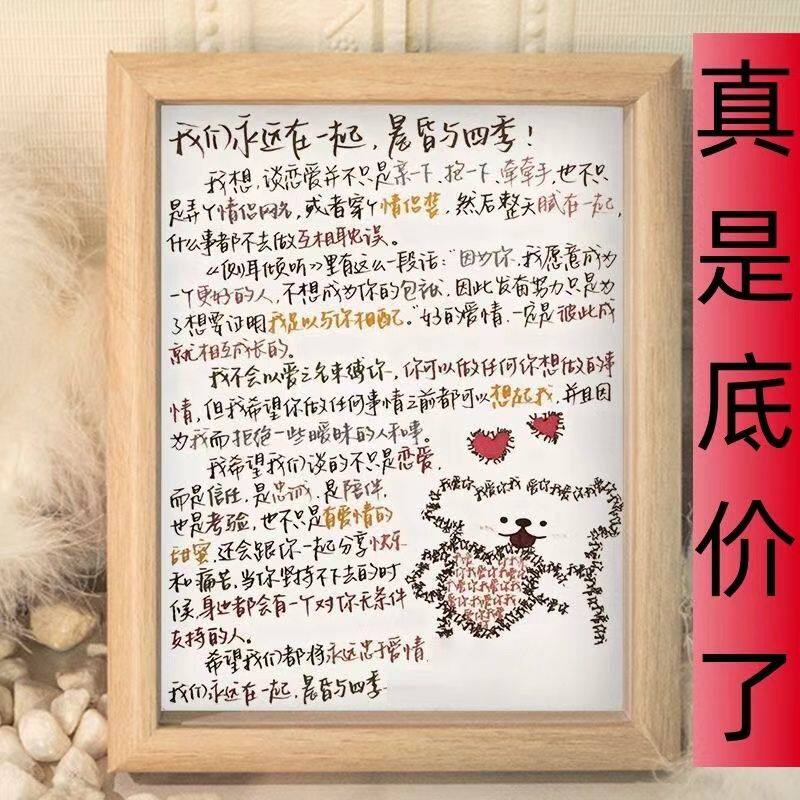 我们永远在一起，晨昏与四季！
我想，谈恋爱并不只是亲一下、抱一下、牵牵手，也不只
是弄个情侣网名，或者穿个情侣装，然后整天腻在一起，
什么事都不去做互相耽误。
《侧耳倾听》里有这么一段话："因为你，我愿意成为
一个更好的人，不想成为你的包袱，因此发奋努力只是为
了想要证明我足以与你相配。"好的爱情，一定是彼此成
就相互成长的。
我不会以爱之名束缚你，你可以做任何你想做的事
情，但我希望你做任何事情之前都可以想起我，并且因
为我而拒绝一些暧昧的人和事。
我希望我们谈的不只是恋爱，
而是信任，是忠诚，是陪伴，
也是考验，也不只是有爱情的
甜蜜，还会跟你一起分享快乐
和痛苦，当你坚持不下去的时
候，身边都会有一个对你无条件
支持的人。
希望我们都将永远忠于爱情
我们永远在一起，晨昏与四季
真是底价了